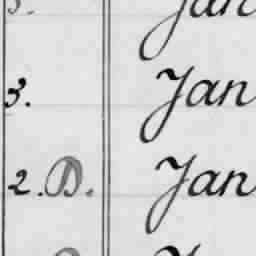 3. Jan
3. Jan
2. D. Jan